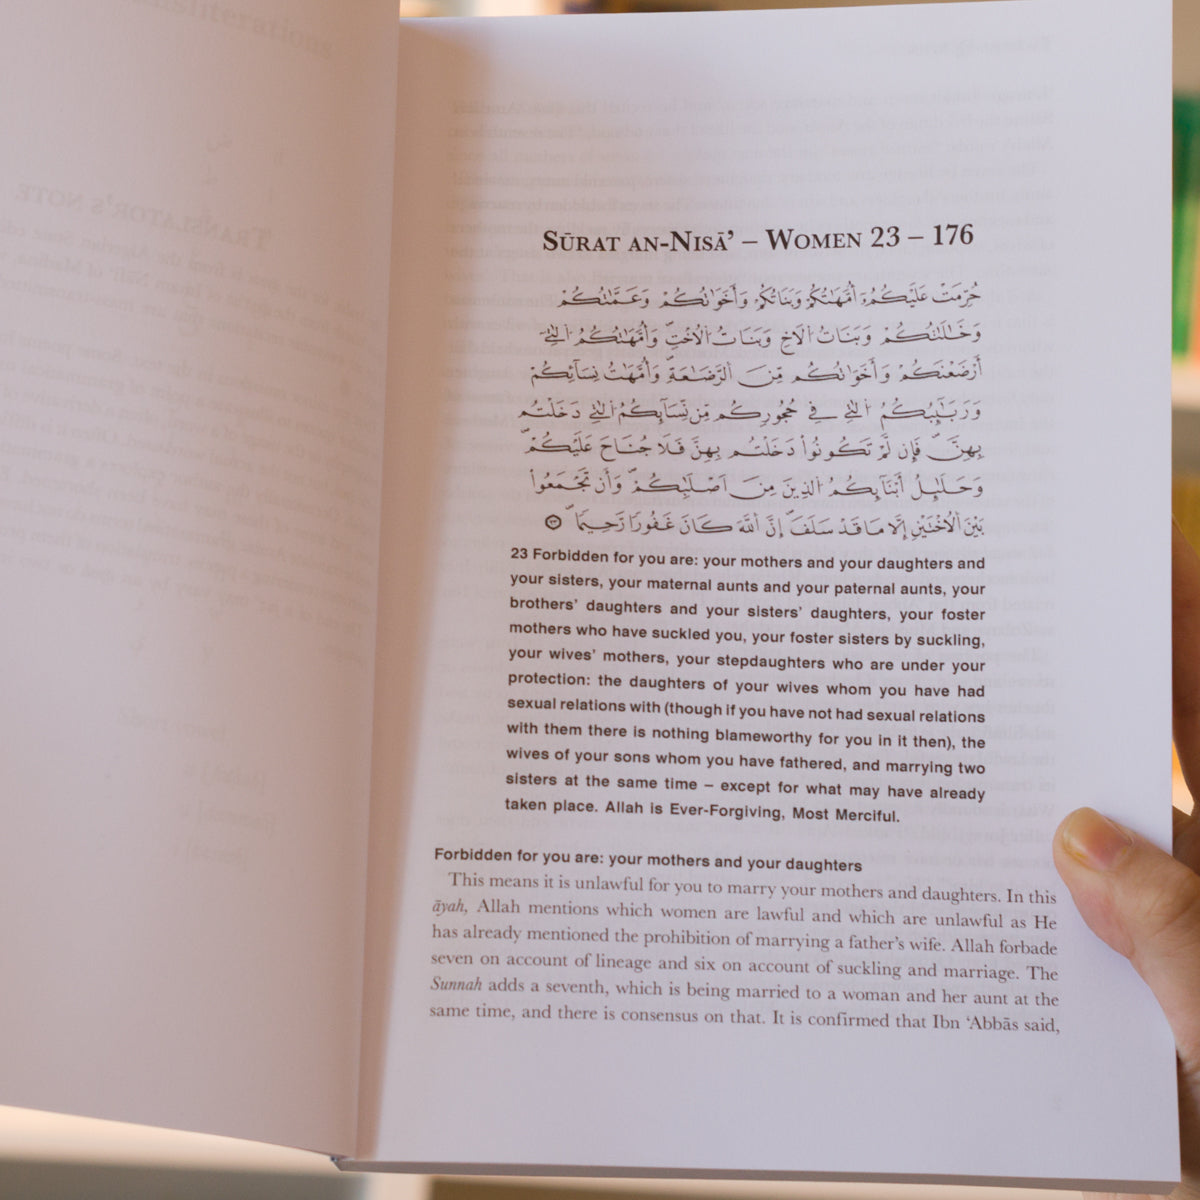 SŪRAT AN-NISĀ’ – WOMEN 23 – 176
حُرِّمَتْ عَلَيْكُمُۥٓ أُمَّهَٰتُكُمْ وَبَنَاتُكُمْ وَأَخَوَٰتُكُمْ وَعَمَّٰتُكُمْ
وَخَٰلَٰتُكُمْ وَبَنَاتُ اُ۬لَاخِ وَبَنَاتُ اُ۬لُاخْتِۖ وَأُمَّهَٰتُكُمُ اُ۬لتِے
أَرْضَعْنَكُمْ وَأَخَوَٰتُكُم مِّنَ اَ۬لرَّضَٰعَةِۖ وَأُمَّهَٰتُ نِسَآئِكُمْ
وَرَبَٰٓئِبُكُمُ اُ۬لتِے فِے حُجُورِكُم مِّن نِّسَآئِكُمُ اُ۬لتِے دَخَلْتُم
بِهِنَّۖ فَإِن لَّمْ تَكُونُواْ دَخَلْتُم بِهِنَّ فَلَا جُنَاحَ عَلَيْكُمْۖ
وَحَلَٰٓئِلُ أَبْنَآئِكُمُ اُ۬لذِينَ مِنَ اَصْلَٰبِكُمْۖ وَأَن تَجْمَعُواْ
بَيْنَ اَ۬لُاخْتَيْنِ إِلَّا مَا قَدْ سَلَفَۖ إِنَّ اَ۬للَّهَ كَانَ غَفُورٗا رَّحِيمٗاۖ ٢٣
23 Forbidden for you are: your mothers and your daughters and
your sisters, your maternal aunts and your paternal aunts, your
brothers’ daughters and your sisters’ daughters, your foster
mothers who have suckled you, your foster sisters by suckling,
your wives’ mothers, your stepdaughters who are under your
protection: the daughters of your wives whom you have had
sexual relations with (though if you have not had sexual relations
with them there is nothing blameworthy for you in it then), the
wives of your sons whom you have fathered, and marrying two
sisters at the same time – except for what may have already
taken place. Allah is Ever-Forgiving, Most Merciful.
Forbidden for you are: your mothers and your daughters
This means it is unlawful for you to marry your mothers and daughters. In this
āyah, Allah mentions which women are lawful and which are unlawful as He
has already mentioned the prohibition of marrying a father’s wife. Allah forbade
seven on account of lineage and six on account of suckling and marriage. The
Sunnah adds a seventh, which is being married to a woman and her aunt at the
same time, and there is consensus on that. It is confirmed that Ibn ‘Abbās said,